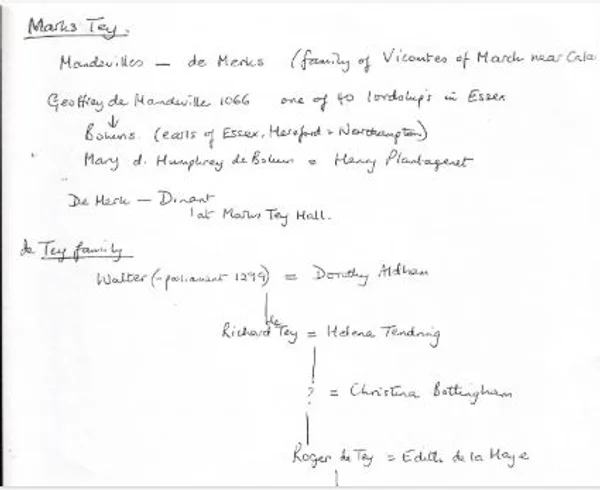 Marks Tey.
Mandevilles — de Merks (family of Vicontes of March near Cala
Geoffrey de Mandeville 1066 one of 40 lordships in Essex
↓
Bohuns (earls of Essex, Hereford + Northampton)
Mary d. Humphrey de Bohun = Henry Plantagenet
De Merk — Dinant
at Marks Tey Hall.
de Tey family
Walter (– parliament 1299) = Dorothy Aldham
Richard de Tey = Helena Tendring
? = Christina Bottingham
Roger de Tey = Edith de la Haye